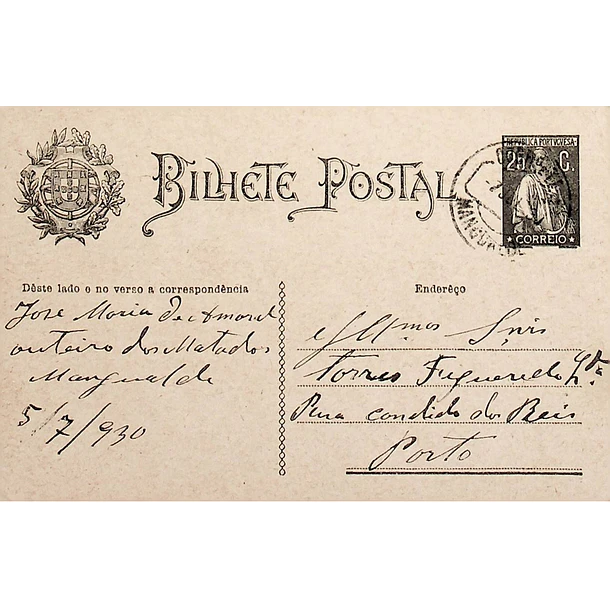 BILHETE POSTAL
REPUBLICA PORTUGUESA
25 C.
CORREIO
MANGUALDE
Dêste lado e no verso a correspondência
José Maria de Amaral
outeiro dos Matados
Mangualde
5/7/930
Enderêço
Ill.mos Snrs
Torres Figueredo Lda.
Rua candido dos Reis
Porto